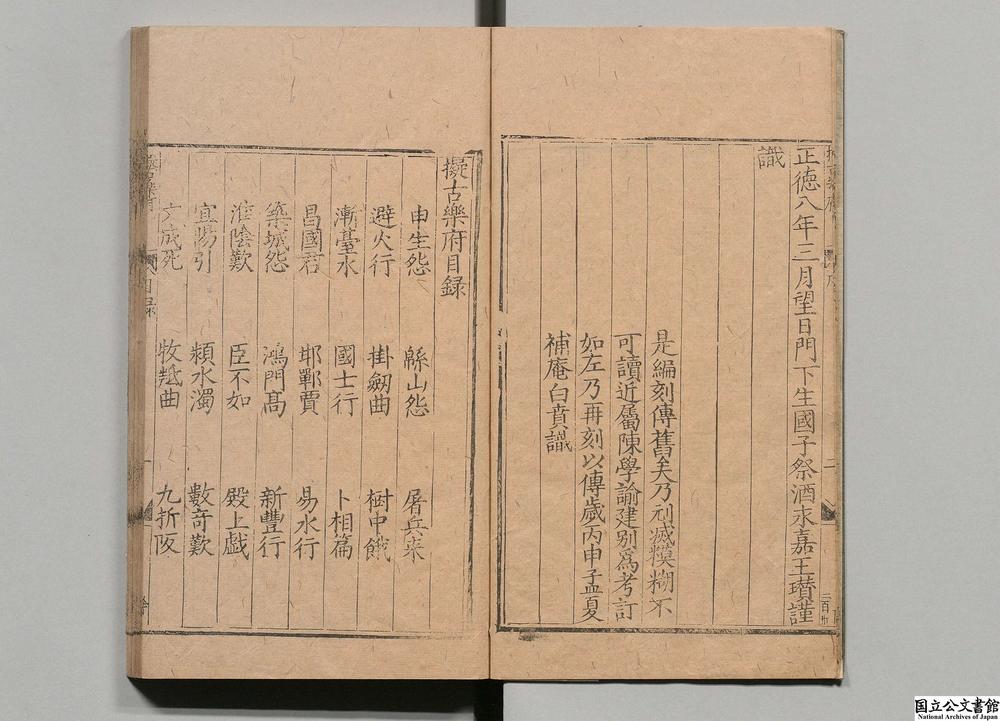 正德八年三月望日門下生國子祭酒永嘉王瓚謹
識
是編刻傳舊矣乃刓滅糢糊不
可讀近屬陳學諭建别爲考訂
如左乃再刻以傳歲丙申孟夏
補庵白賁識
擬古樂府目録
申生怨 緜山怨 屠兵来
避火行 掛劒曲 樹中餓
漸臺水 國士行 卜相篇
昌國君 邯鄲賈 易水行
築城怨 鴻門高 新豐行
淮陰歎 臣不如 殿上戱
宜陽引 潁水濁 數竒歎
文成死 牧羝曲 九折阪
国立公文書館
National Archives of Japan